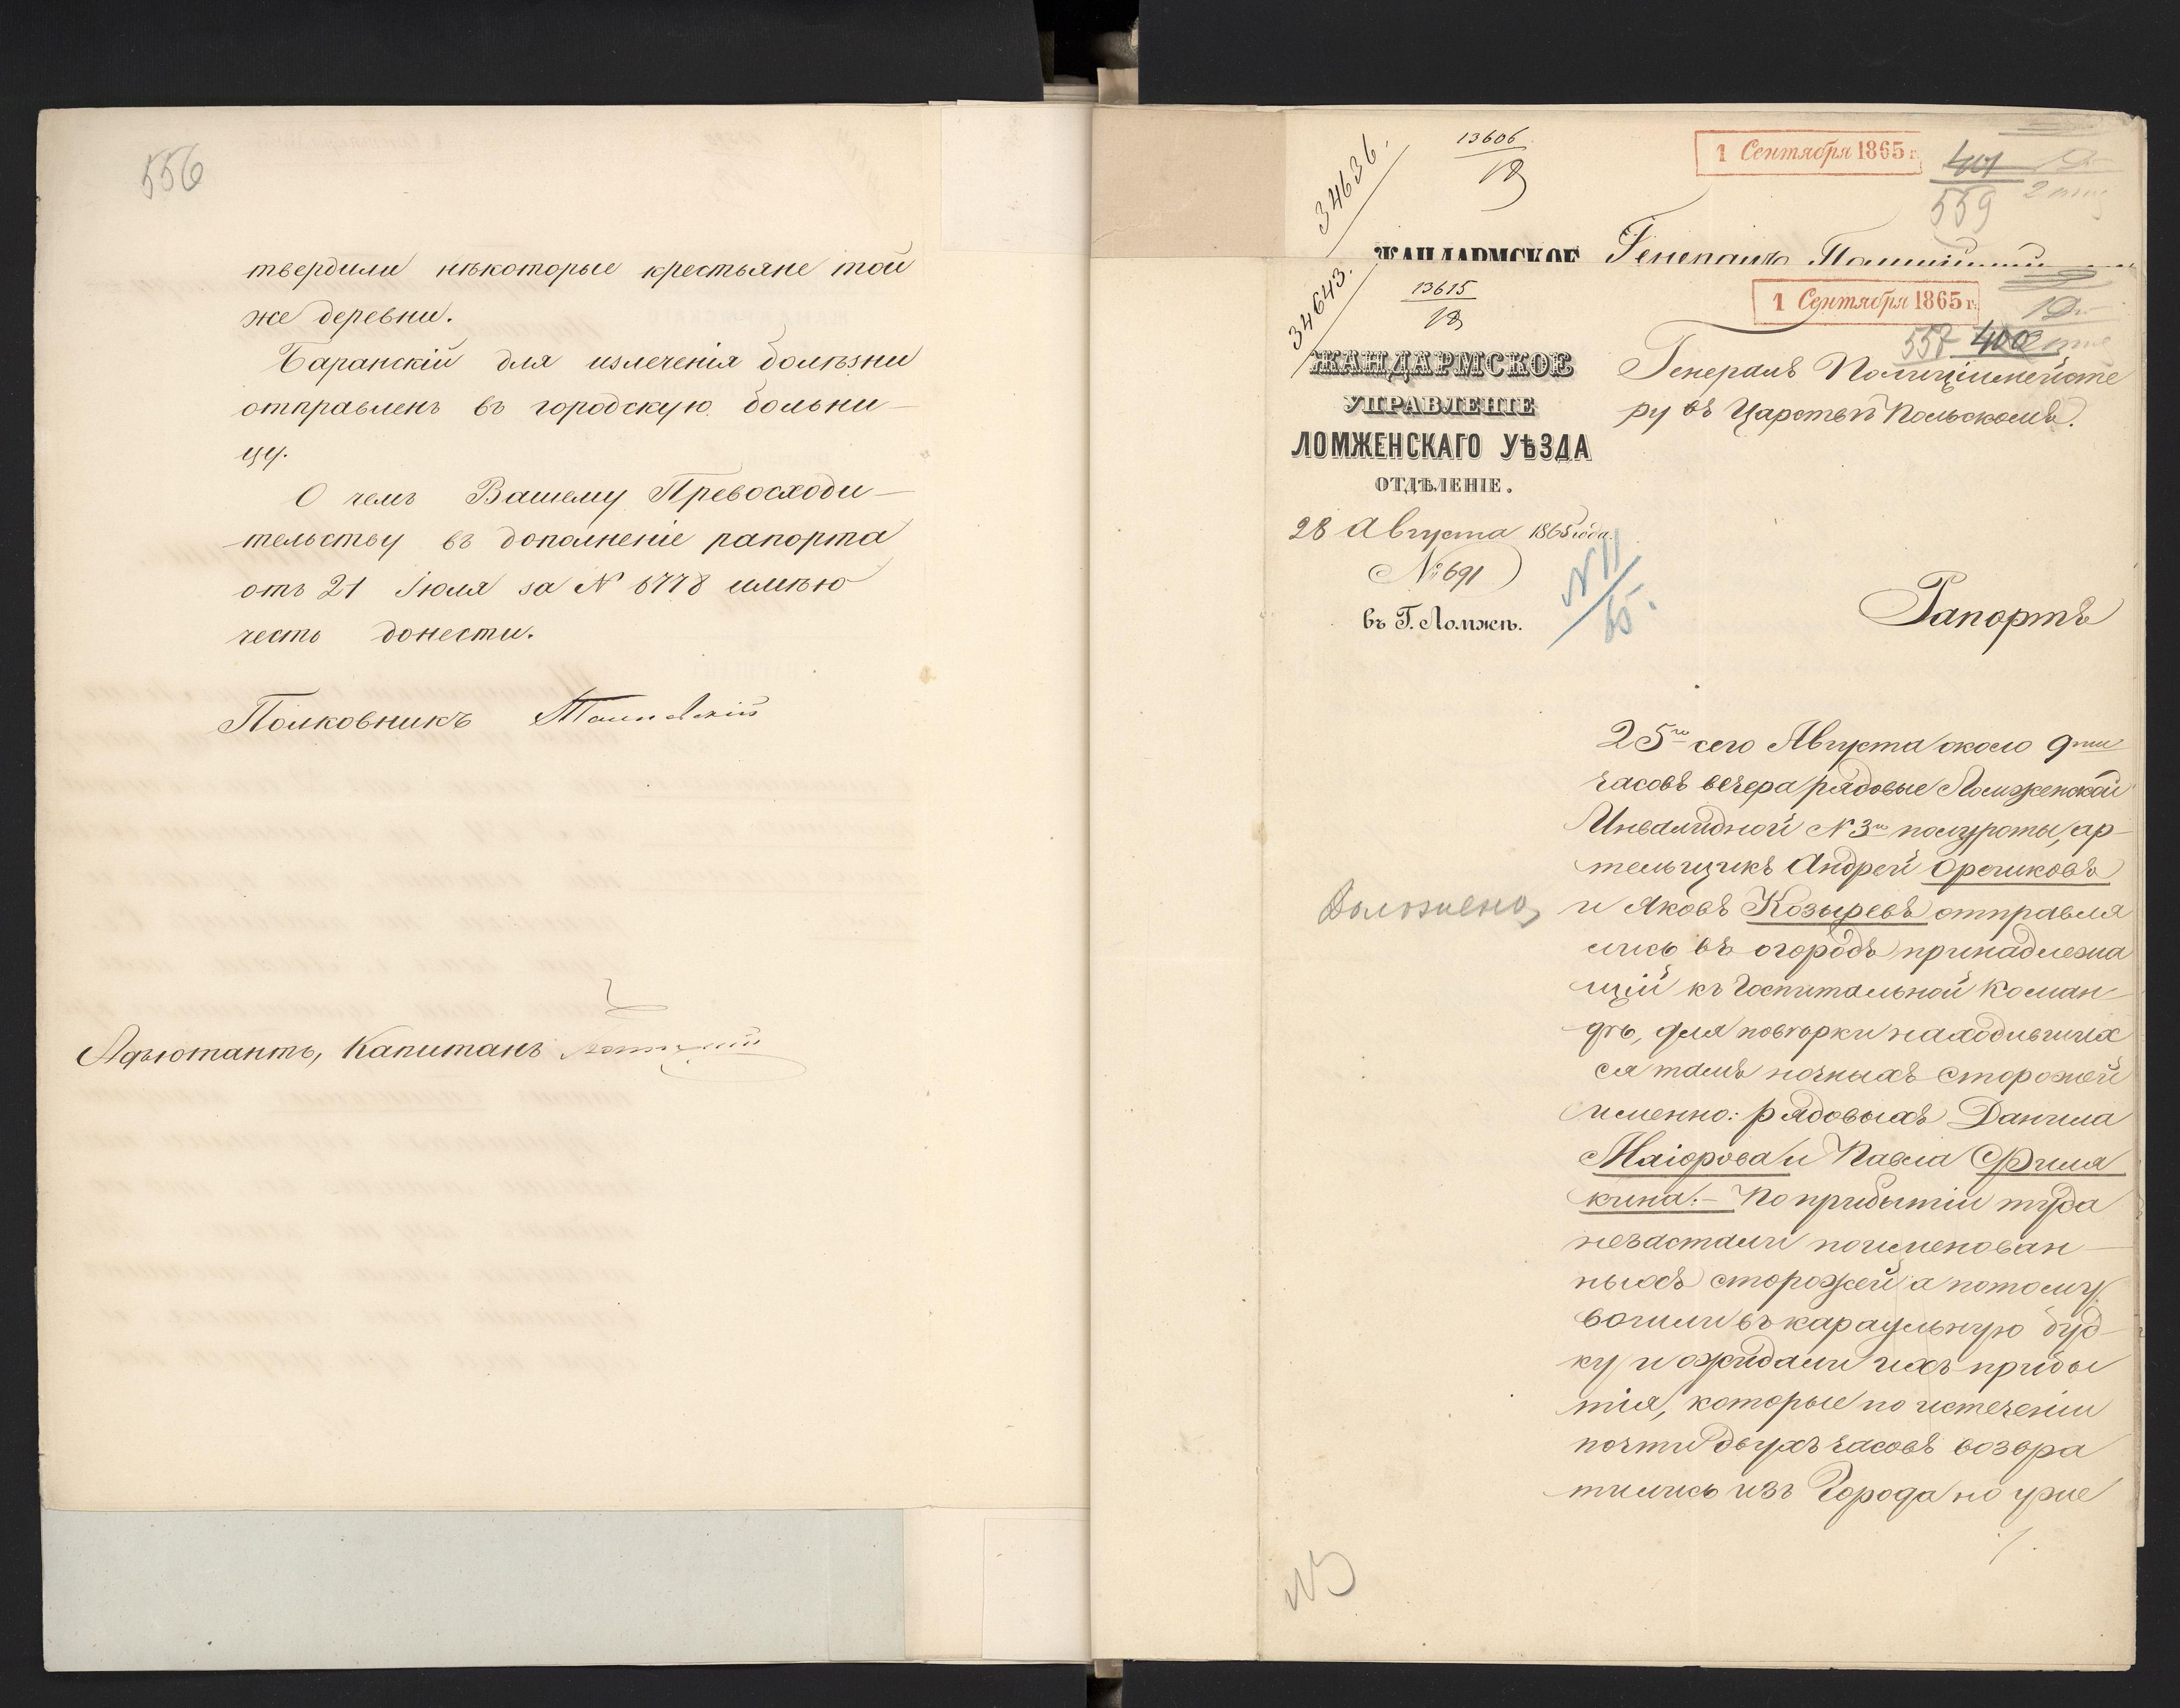 556
твердили нѣкоторые крестьяне той
же деревни.
Баранскій для излеченія болѣзни
отправленъ въ городскую больни-
цу.
О чемъ Вашему Превосходи-
тельству въ дополненіе рапорта
отъ 21 Іюля за N 6778 имѣю
честь донести.
Полковникъ
Адъютантъ, Капитанъ
34636.
13606
1 Сентября 1865 г.
401
559
ЖАНДАРМСКОЕ
34643.
13615
1 Сентября 1865 г.
557 400
ЖАНДАРМСКОЕ
УПРАВЛЕНІЕ
ЛОМЖЕНСКАГО УѢЗДА
ОТДѢЛЕНІЕ.
28 Августа 1865 года.
№ 691
въ Г. Ломжѣ.
N 11
65.
Генералъ Полиціймейсте
ру въ Царствѣ Польскомъ.
Рапортъ
25го сего Августа около 9ти
часовъ вечера рядовые Ломженской
Инвалидной N 3й полуроты, ар-
тельщикъ Андрей Орешковъ
и Яковъ Козыревъ отправля
лись въ огородъ принадлежа
щій къ Госпитальной Коман-
дѣ, для повѣрки находившихъ
ся тамъ ночныхъ сторожей
именно: рядовыхъ Данила
Маіорова и Павла Филя
кина.- По прибытіи туда
незастали поименован-
ныхъ сторожей а потому
вошли въ караульную буд-
ку и ожидали ихъ прибы
тія, которые по истеченіи
почти двухъ часовъ возвра
тились изъ Города но уже
Доложено